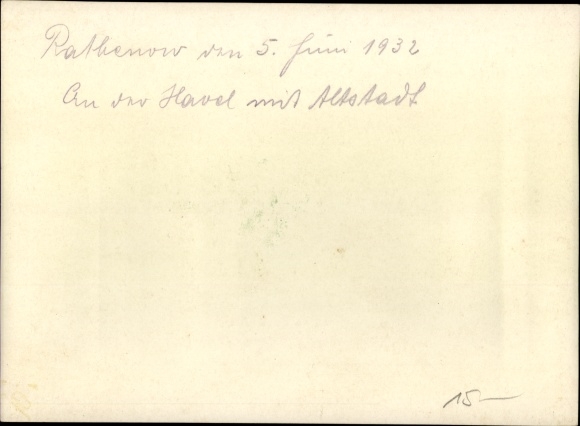 Rathenow den 5. Juni 1932
An der Havel mit Altstadt
15—